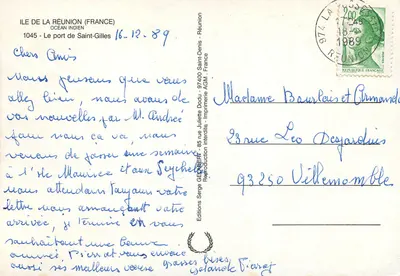 ILE DE LA RÉUNION (FRANCE)
OCEAN INDIEN
1045 - Le port de Saint-Gilles
16-12-89
Chers Amis
Nous pensons que vous
allez bien, nous avons de
vos nouvelles par M. André
pour nous ça va, nous
venons de passer une semaine
à l'Ile Maurice et aux Seychelles
nous attendons toujours votre
lettre nous annonçant votre
arrivée, je termine en vous
souhaitant une bonne
année. Pierrot vous envoie
aussi ses meilleurs vœux grosses bises,
Yolande
Editions Serge 85 rue Juliette Dodu - 97400 Saint-Denis - Réunion
Reproduction interdite - Imprimerie AGM - France
974
18-12
1989
REUNION
Madame Bourlais et Armand
23 rue Léo Desjardins
93250 Villemomble